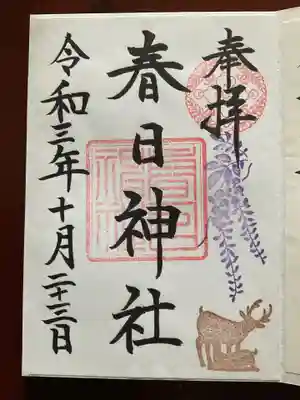 奉拝
春日神社
令和三年十月二十三日